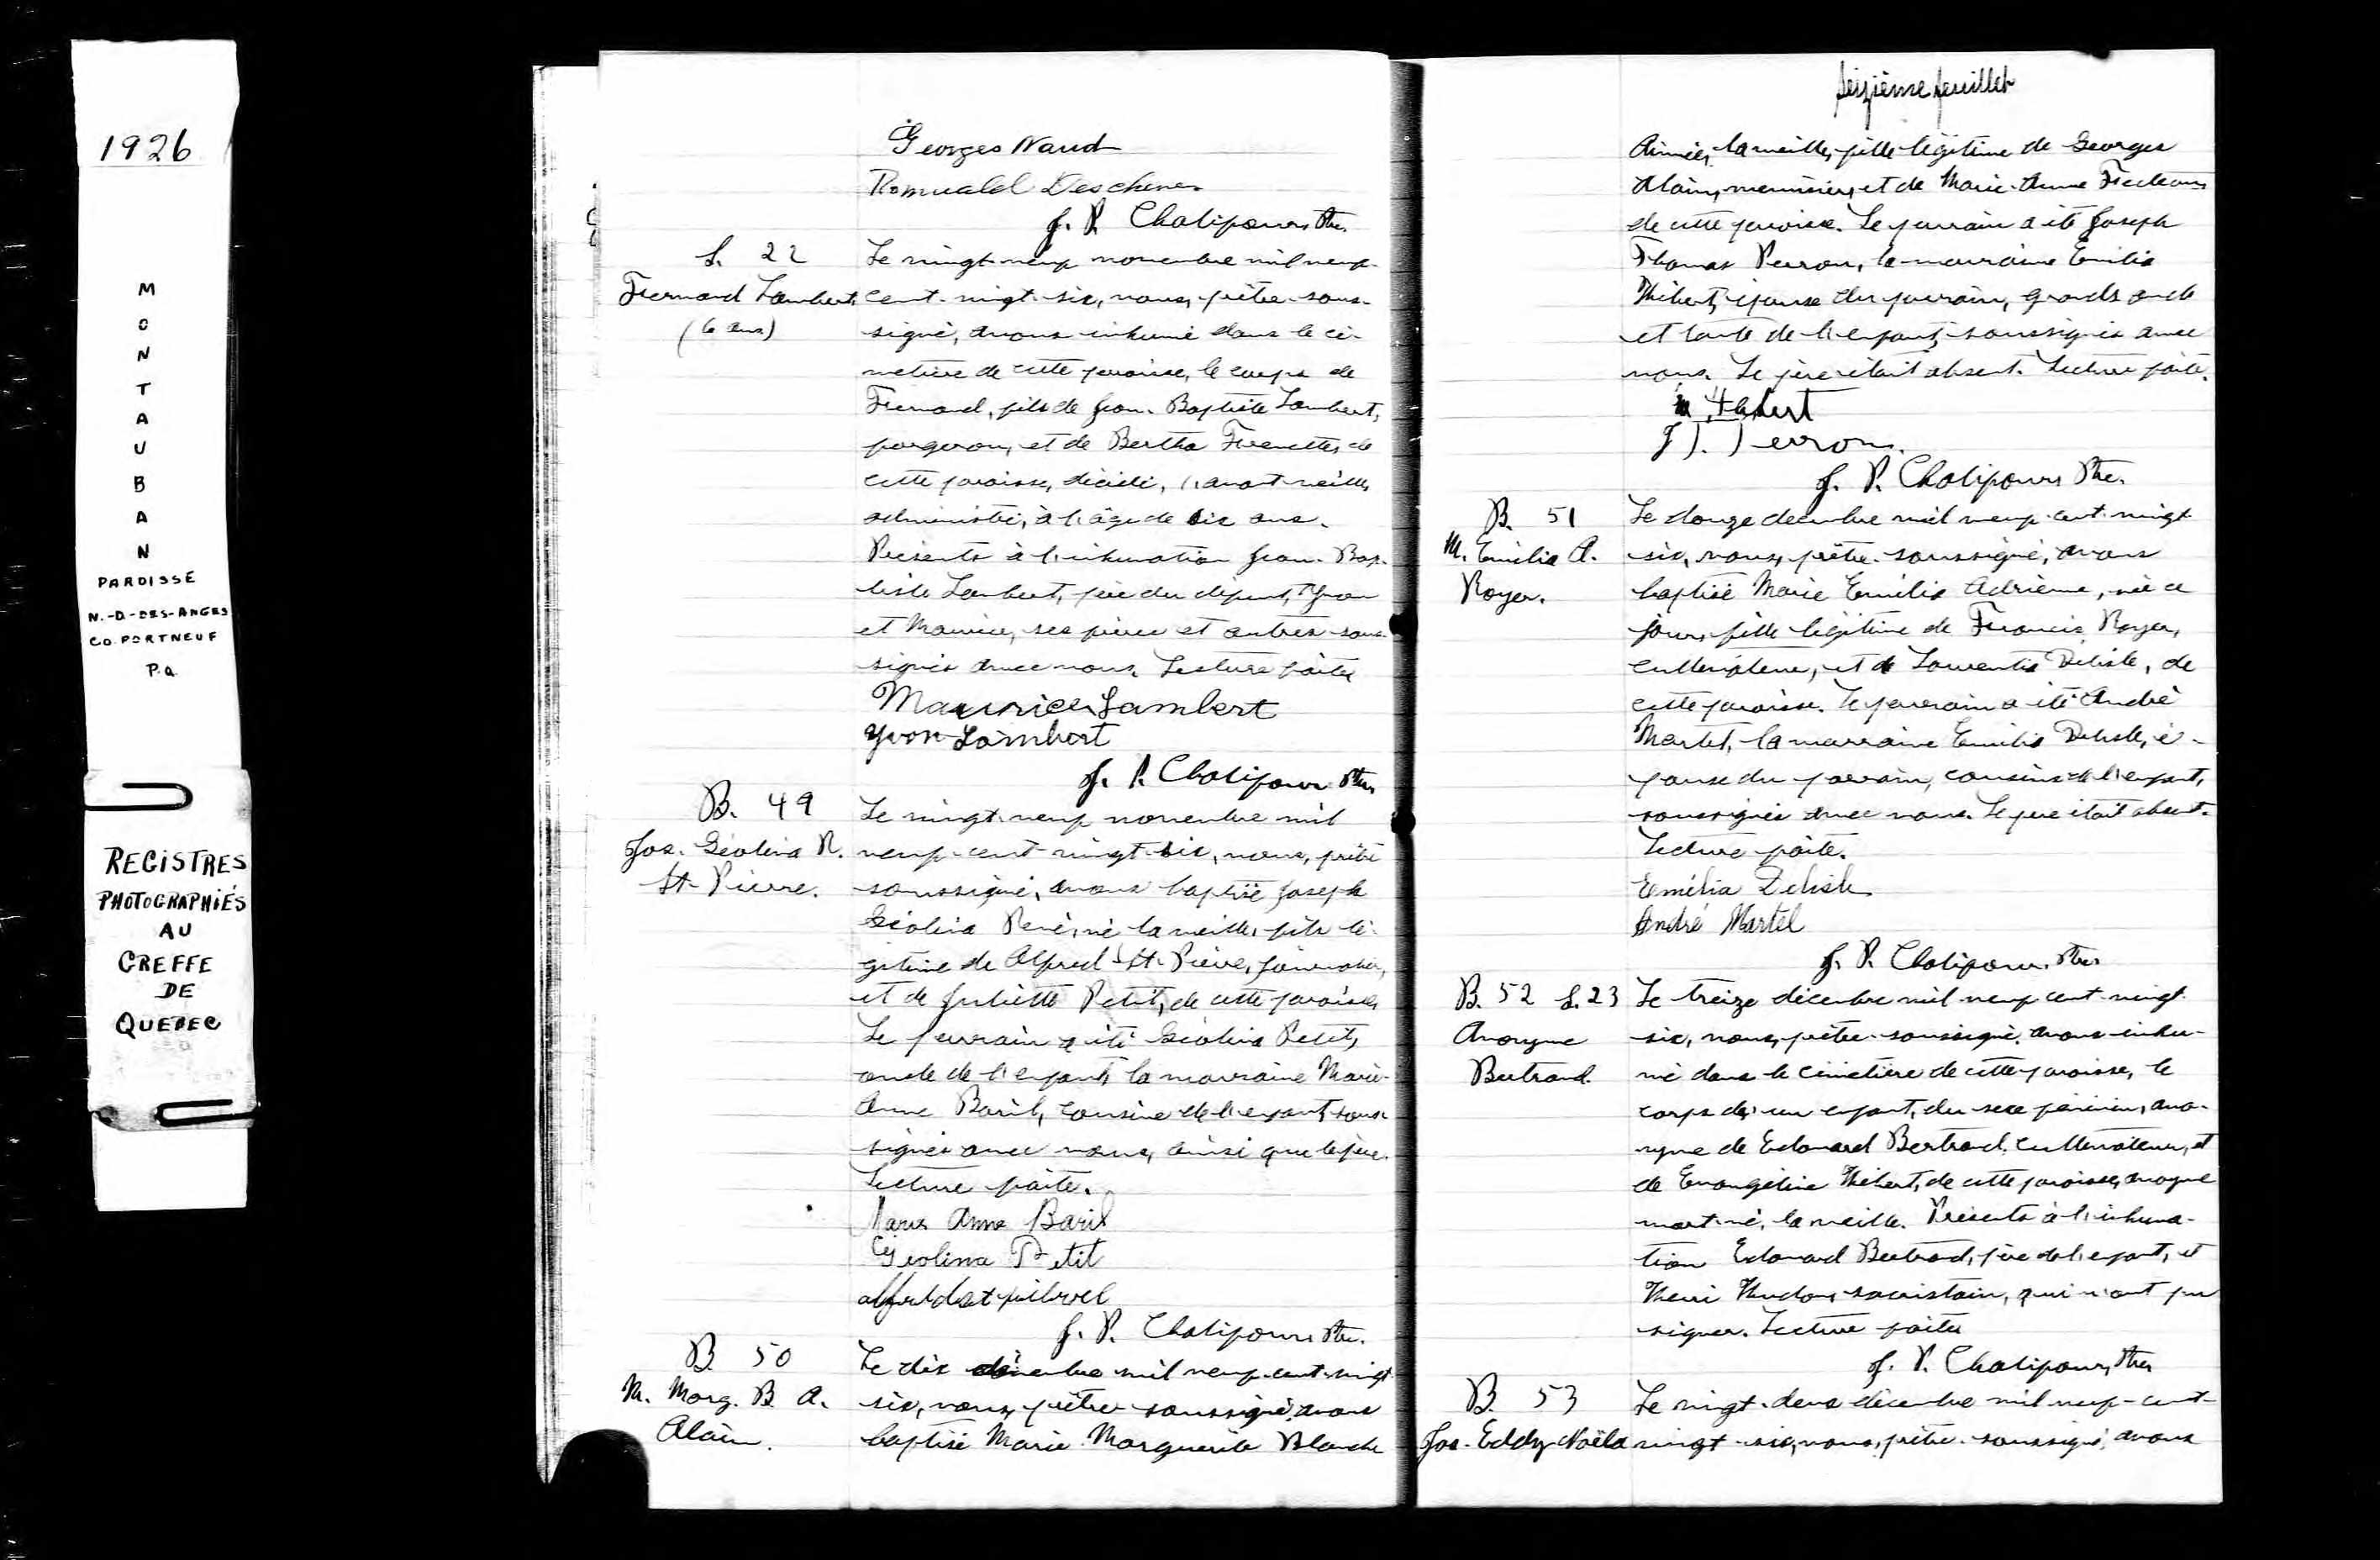 1926
M
O
N
T
A
U
B
A
N
PAROISSE
N.-D.-DES-ANGES
CO. PORTNEUF
P.Q.
REGISTRES
PHOTOGRAPHIÉS
AU
GREFFE
DE
QUEBEC
Georges Naud
Romuald Deschenes
J. P. Chalifour, Ptre.
S. 22
Fernand Lambert
(6 ans)
Le vingt-neuf novembre mil neuf-
cent-vingt-six, nous, prêtre sous-
signé, avons inhumé dans le ci-
metière de cette paroisse, le corps de
Fernand, fils de Jean-Baptiste Lambert,
forgeron, et de Bertha Frenette, de
cette paroisse, décédé, l'avant-veille,
administré, à l'âge de six ans.
Présents à l'inhumation Jean-Bap-
tiste Lambert, père du défunt, Yvon
et Maurice, ses frères et autres sous-
signés avec nous. Lecture faite.
Maurice Lambert
Yvon Lambert
J. P. Chalifour Ptre
B. 49
Jos. Géolina R.
St-Pierre.
Le vingt-neuf novembre mil
neuf-cent-vingt-six, nous, prêtre
soussigné, avons baptisé Joseph
Géolina René, né la veille, fils lé-
gitime de Alfred St-Pierre, journalier,
et de Juliette Petit, de cette paroisse.
Le parrain a été Géolina Petit,
oncle de l'enfant, la marraine Marie-
Anne Baril, cousine de l'enfant, sous-
signés avec nous, ainsi que le père.
Lecture faite.
Marie Anne Baril
Geolina Petit
J. P. Chalifour, Ptre.
B. 50
M. Marg. B. A.
Alain.
Le dix décembre mil neuf-cent-vingt
six, nous, prêtre soussigné, avons
baptisé Marie Marguerite Blanche
seizième feuillet
Aimée, la veille, fille légitime de Georges
Alain, menuisier, et de Marie-Anne
de cette paroisse. Le parrain a été Joseph
Thomas Perron, la marraine Emilia
Thibert, épouse du parrain, grands oncle
et tante de l'enfant, soussignés avec
nous. Le père était absent. Lecture faite.
J. Perron
J. P. Chalifour, Ptre.
B. 51
M. Emilia A.
Royer.
Le douze décembre mil neuf-cent-vingt
six, nous, prêtre soussigné, avons
baptisé Marie Emilia Adrienne, née ce
jour, fille légitime de Francis Royer,
cultivateur, et de Laurentia Delisle, de
cette paroisse. Le parrain a été André
Martel, la marraine Emilia Delisle, é-
pouse du parrain, cousins de l'enfant,
soussignés avec nous. Le père était absent.
Lecture faite.
Emélia Delisle
André Martel
J. P. Chalifour, Ptre
B. 52 S. 23
Anonyme
Bertrand.
Le treize décembre mil neuf cent-vingt
six, nous, prêtre soussigné, avons inhu-
mé dans le cimetière de cette paroisse, le
corps d'un enfant, du sexe féminin, ano-
nyme de Edouard Bertrand, cultivateur, et
de Evangéline Thibert, de cette paroisse,
mort-né, la veille. Présents à l'inhuma-
tion Edouard Bertrand, père de l'enfant, et
Henri Hudon, sacristain, qui n'ont pu
signer. Lecture faite
J. P. Chalifour, Ptre
B. 53
Jos-Eddy-Noëla
Le vingt-deux décembre mil neuf-cent-
vingt-six, nous, prêtre soussigné, avons